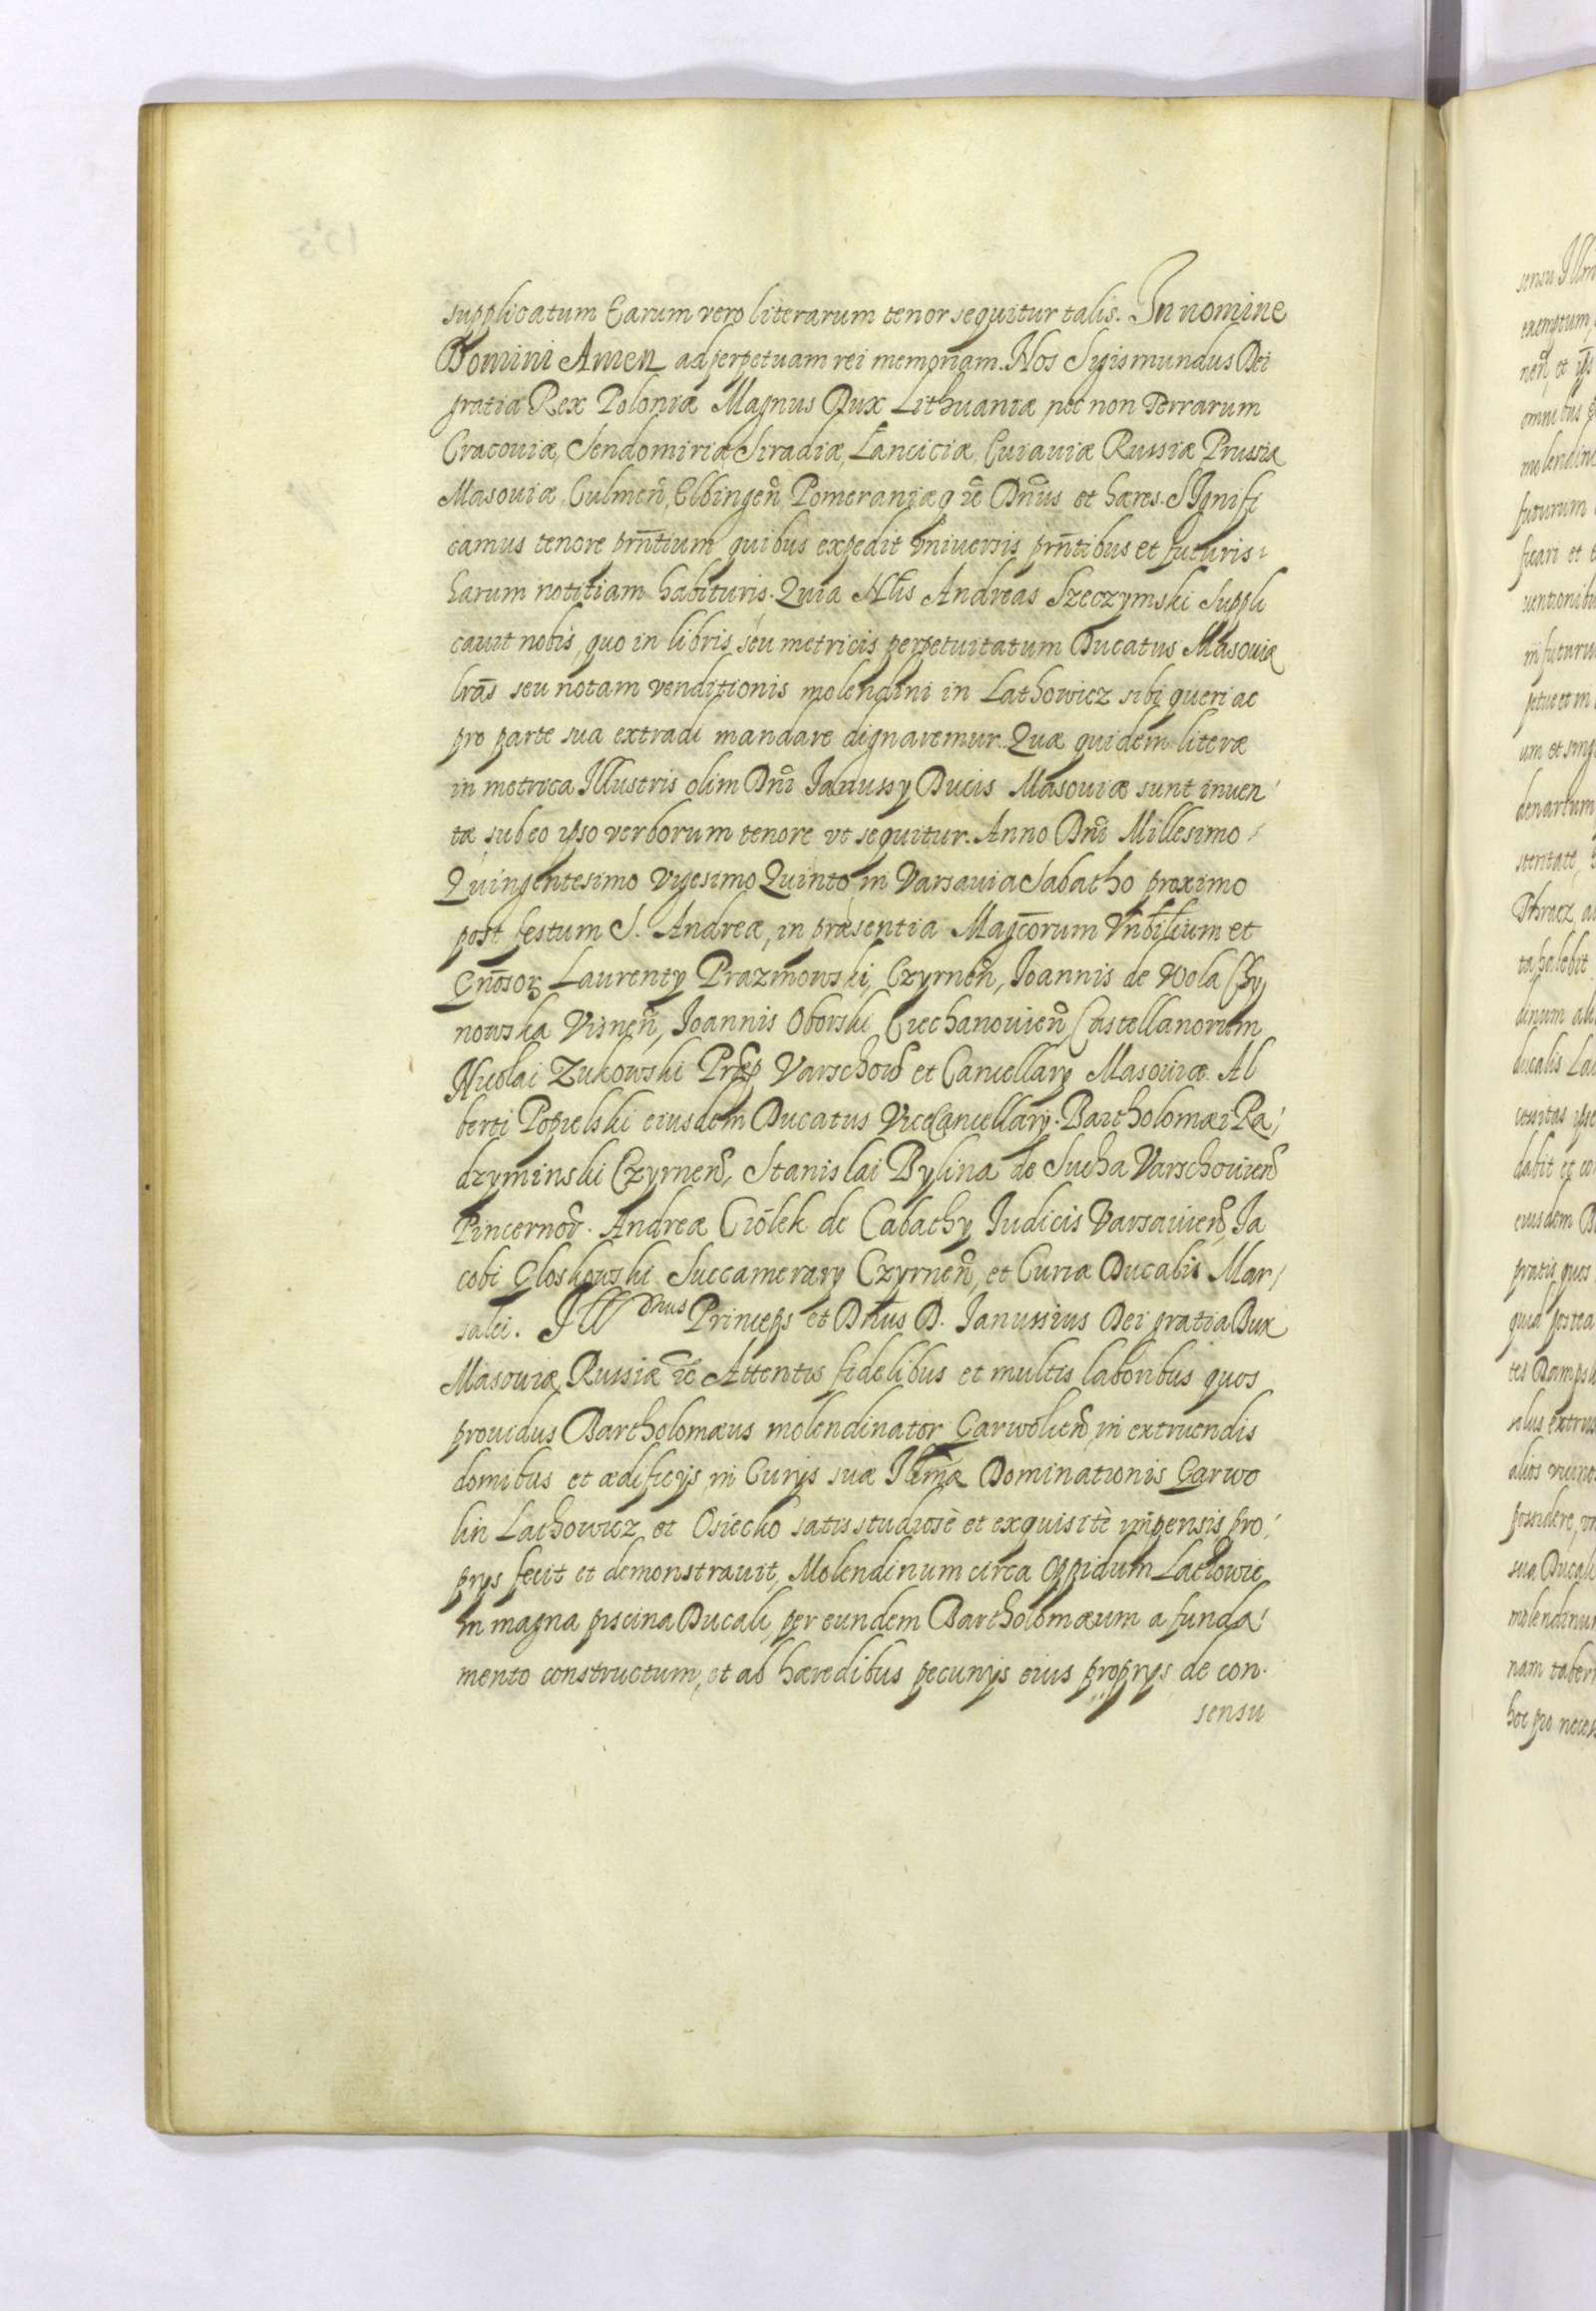 supplicatum Earum vero literarum tenor sequitur talis. In nomine
Domini Amen ad perpetuam rei memoriam. Nos Sigismundus Dei
gratia Rex Poloniæ Magnus Dux Lithuaniæ nec non Terrarum
Cracouiæ, Sendomiriæ Siradiæ, Lanciciæ, Cuiauiæ Russiæ Prussiæ
Masouiæ, Culmeñ, Elbingeñ Pomeraniæq ꝛc Dñus et hæres. Signifi
camus tenore prñtium quibus expedit vniuersis prñtibus et futuris
harum notitiam habituris. Quia Nlis Andreas Szeczymski Suppli
cauit nobis, quo in libris seu metricis perpetuitatum Ducatus Masouiæ
lrãs seu notam venditionis molendini in Lathowicz sibi queri ac
pro parte sua extradi mandare dignaremur. Quæ quidem literæ
in metrica Illustris olim Dñi Ianussy Ducis Masouiæ sunt inuen
tæ sub eo ipso verborum tenore vt sequitur. Anno Dñi Millesimo
Quingentesimo Vigesimo Quinto in Varsauia Sabatho proximo
post festum S. Andreæ, in præsentia Magcorum Vnbilium et
Gñosoꝝ Laurenty Prazmowski, Czyrneñ, Ioannis de Wola Chy
nowska Visneñ, Ioannis Oborski Ciechanouieñ Castellanorum
Nicolai Zukowski Præp Varschoũ et Cancellary Masouiæ. Al
berti Popielski eiusdem Ducatus ViceCancellary. Bartholomæi Ra
dzyminski Czyrneñ, Stanislai Bylina de Sucha Varschouieñ
Pincernoꝝ. Andreæ Ciólek de Cabathy Iudicis Varsauieñ, Ia
cobi Gloskowski Succamerary Czyrneñ, et Curiæ Ducalis Mar
salci. Ill mus Princeps et Dñus D. Ianussius Dei gratia Dux
Masouiæ Russiæ ꝛc Attentis fidelibus et multis laboribus quos
prouidus Bartholomæus molendinator Garwolieñ, in extruendis
domibus et ædificijs in Curijs suæ Illmæ Dominationis Garwo
lin Lathowicz et Osiecko satis studiosè et exquisitè impensis pro
prys fecit et demonstrauit, Molendinum circa Oppidum Lathowic
in magna piscina Ducali, per eundem Bartholomæum a funda
mento constructum, et ab hæredibus pecunijs eius proprys de con
sensu